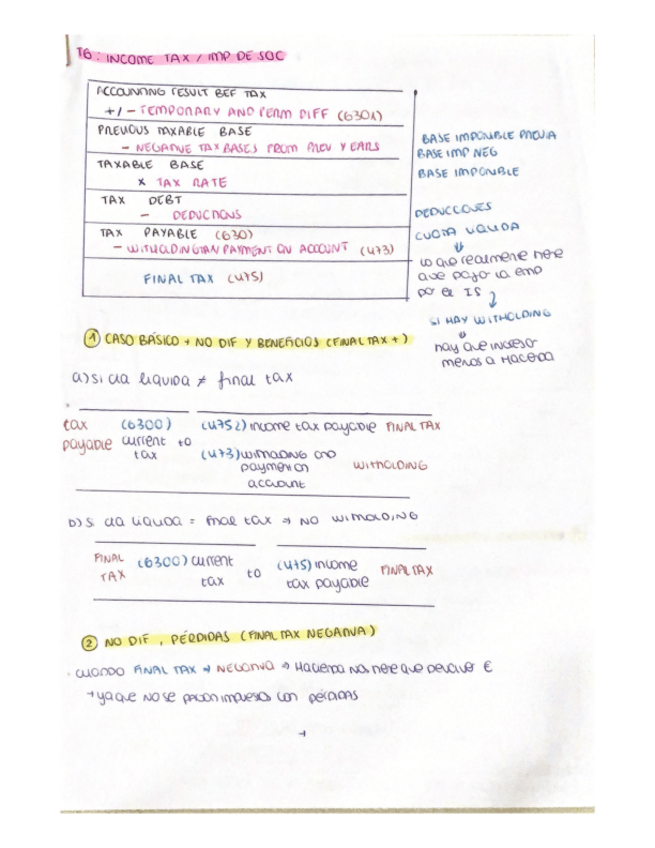 T6: INCOME TAX / IMP DE SOC
ACCOUNTING RESULT BEF TAX
+/- TEMPORARY AND PERM DIFF (6301)
PREVIOUS TAXABLE BASE
- NEGATIVE TAX BASES FROM PREV YEARS
TAXABLE BASE
x TAX RATE
TAX DEBT
- DEDUCTIONS
TAX PAYABLE (630)
- WITHOLDING AN PAYMENT ON ACCOUNT (473)
FINAL TAX (475)
BASE IMPONIBLE PREVIA
BASE IMP NEG
BASE IMPONIBLE
DEDUCCIONES
CUOTA LIQUIDA
⇓
lo que realmente tiene
que pagar la emp
por el IS
SI HAY WITHOLDING
⇓
hay que ingresar
menos a Hacienda
① CASO BÁSICO + NO DIF Y BENEFICIOS (FINAL TAX +)
a) si cta liquida ≠ final tax
tax payable
(6300) current tax
to
(4752) income tax payable FINAL TAX
(473) witholding and payment on account
WITHOLDING
b) Si cta liquida = final tax ⇒ NO WITHOLDING
FINAL TAX
(6300) current tax
to
(475) income tax payable
FINAL TAX
② NO DIF, PÉRDIDAS (FINAL TAX NEGATIVA)
· cuando FINAL TAX → NEGATIVA ⇒ Hacienda nos tiene que devolver €
→ ya que NO se pagan impuestos con PÉRDIDAS